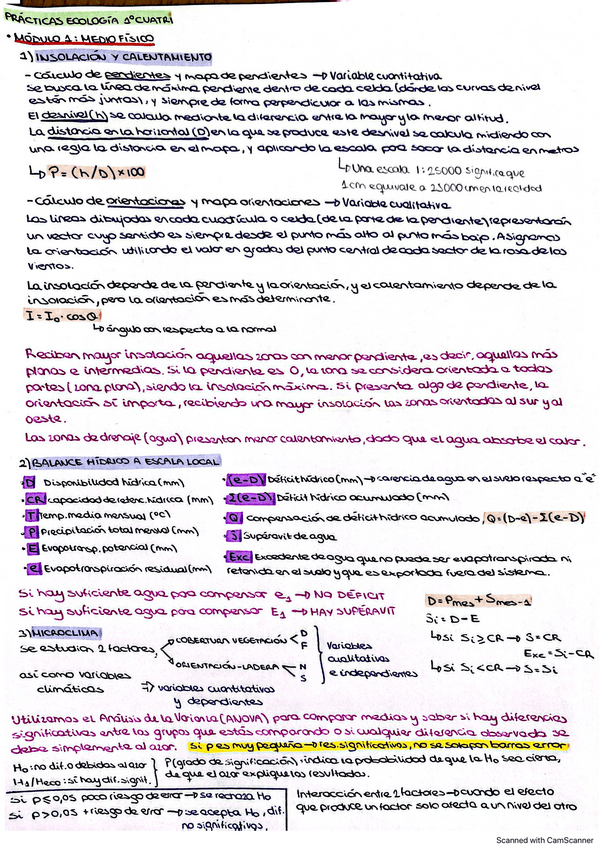 PRÁCTICAS ECOLOGÍA 1º CUATRI
• MÓDULO 1: MEDIO FÍSICO
1) INSOLACIÓN Y CALENTAMIENTO
- Cálculo de pendientes y mapa de pendientes → Variable cuantitativa
Se busca la línea de máxima pendiente dentro de cada celda (dónde las curvas de nivel
están más juntas), y siempre de forma perpendicular a las mismas.
El desnivel (h) se calcula mediante la diferencia entre la mayor y la menor altitud.
La distancia en la horizontal (D) en la que se produce este desnivel se calcula midiendo con
una regla la distancia en el mapa, y aplicando la escala para sacar la distancia en metros
↳ P = (h/D) × 100
↳ Una escala 1:25000 significa que
1cm equivale a 25000 cm en la realidad
- Cálculo de orientaciones y mapa orientaciones → Variable cualitativa
Las líneas dibujadas en cada cuadrícula o celda (de la parte de la pendiente) representarán
un vector cuyo sentido es siempre desde el punto más alto al punto más bajo. Asignamos
la orientación utilizando el valor en grados del punto central de cada sector de la rosa de los
vientos.
La insolación depende de la pendiente y la orientación, y el calentamiento depende de la
insolación, pero la orientación es más determinante.
I = I₀ · cos θ
↳ ángulo con respecto a la normal
Reciben mayor insolación aquellas zonas con menor pendiente, es decir, aquellas más
planas e intermedias. Si la pendiente es 0, la zona se considera orientada a todas
partes (zona plana), siendo la insolación máxima. Si presenta algo de pendiente, la
orientación sí importa, recibiendo una mayor insolación las zonas orientadas al sur y al
oeste.
Las zonas de drenaje (agua) presentan menor calentamiento, dado que el agua absorbe el calor.
2) BALANCE HÍDRICO A ESCALA LOCAL
• D Disponibilidad hídrica (mm)
• CR capacidad de retenc. hídrica (mm)
• T Temp. media mensual (ºc)
• P Precipitación total mensual (mm)
• E Evapotransp. potencial (mm)
• e Evapotranspiración residual (mm)
• (e-D) Déficit hídrico (mm) → carencia de agua en el suelo respecto a "e"
• Σ(e-D) Déficit hídrico acumulado (mm)
• Q compensación de déficit hídrico acumulado, Q = (D-e) - Σ(e-D)
• S Superávit de agua
• Exc Excedente de agua que no puede ser evapotranspirada ni
retenida en el suelo y que es exportada fuera del sistema.
Si hay suficiente agua para compensar e₁ → NO DÉFICIT
Si hay suficiente agua para compensar E₁ → HAY SUPERÁVIT
D = Pmes + Smes-1
Si = D - E
↳ Si Si ≥ CR → S = CR
Exc = Si - CR
↳ Si Si < CR → S = Si
3) MICROCLIMA
Se estudian 2 factores,
COBERTURA VEGETACIÓN < D
F
ORIENTACIÓN-LADERA < N
S
Variables
cualitativas
e independientes
así como variables
climáticas
⇒ variables cuantitativas
y dependientes
Utilizamos el Análisis de la Varianza (ANOVA) para comparar medias y saber si hay diferencias
significativas entre los grupos que estás comparando o si cualquier diferencia observada se
debe simplemente al azar. Si p es muy pequeña → res. significativos, no se solapan barras error
H₀: no dif. o debidas al azar
H₁/Heco: sí hay dif. signif.
P (grado de significación): indica la probabilidad de que la H₀ sea cierta,
de que el azar explique los resultados.
Si p ≤ 0,05 poco riesgo de error → se rechaza H₀
Si p > 0,05 + riesgo de error → se acepta H₀, dif.
no significativas.
Interacción entre 2 factores → cuando el efecto
que produce un factor solo afecta a un nivel del otro
Scanned with CamScanner